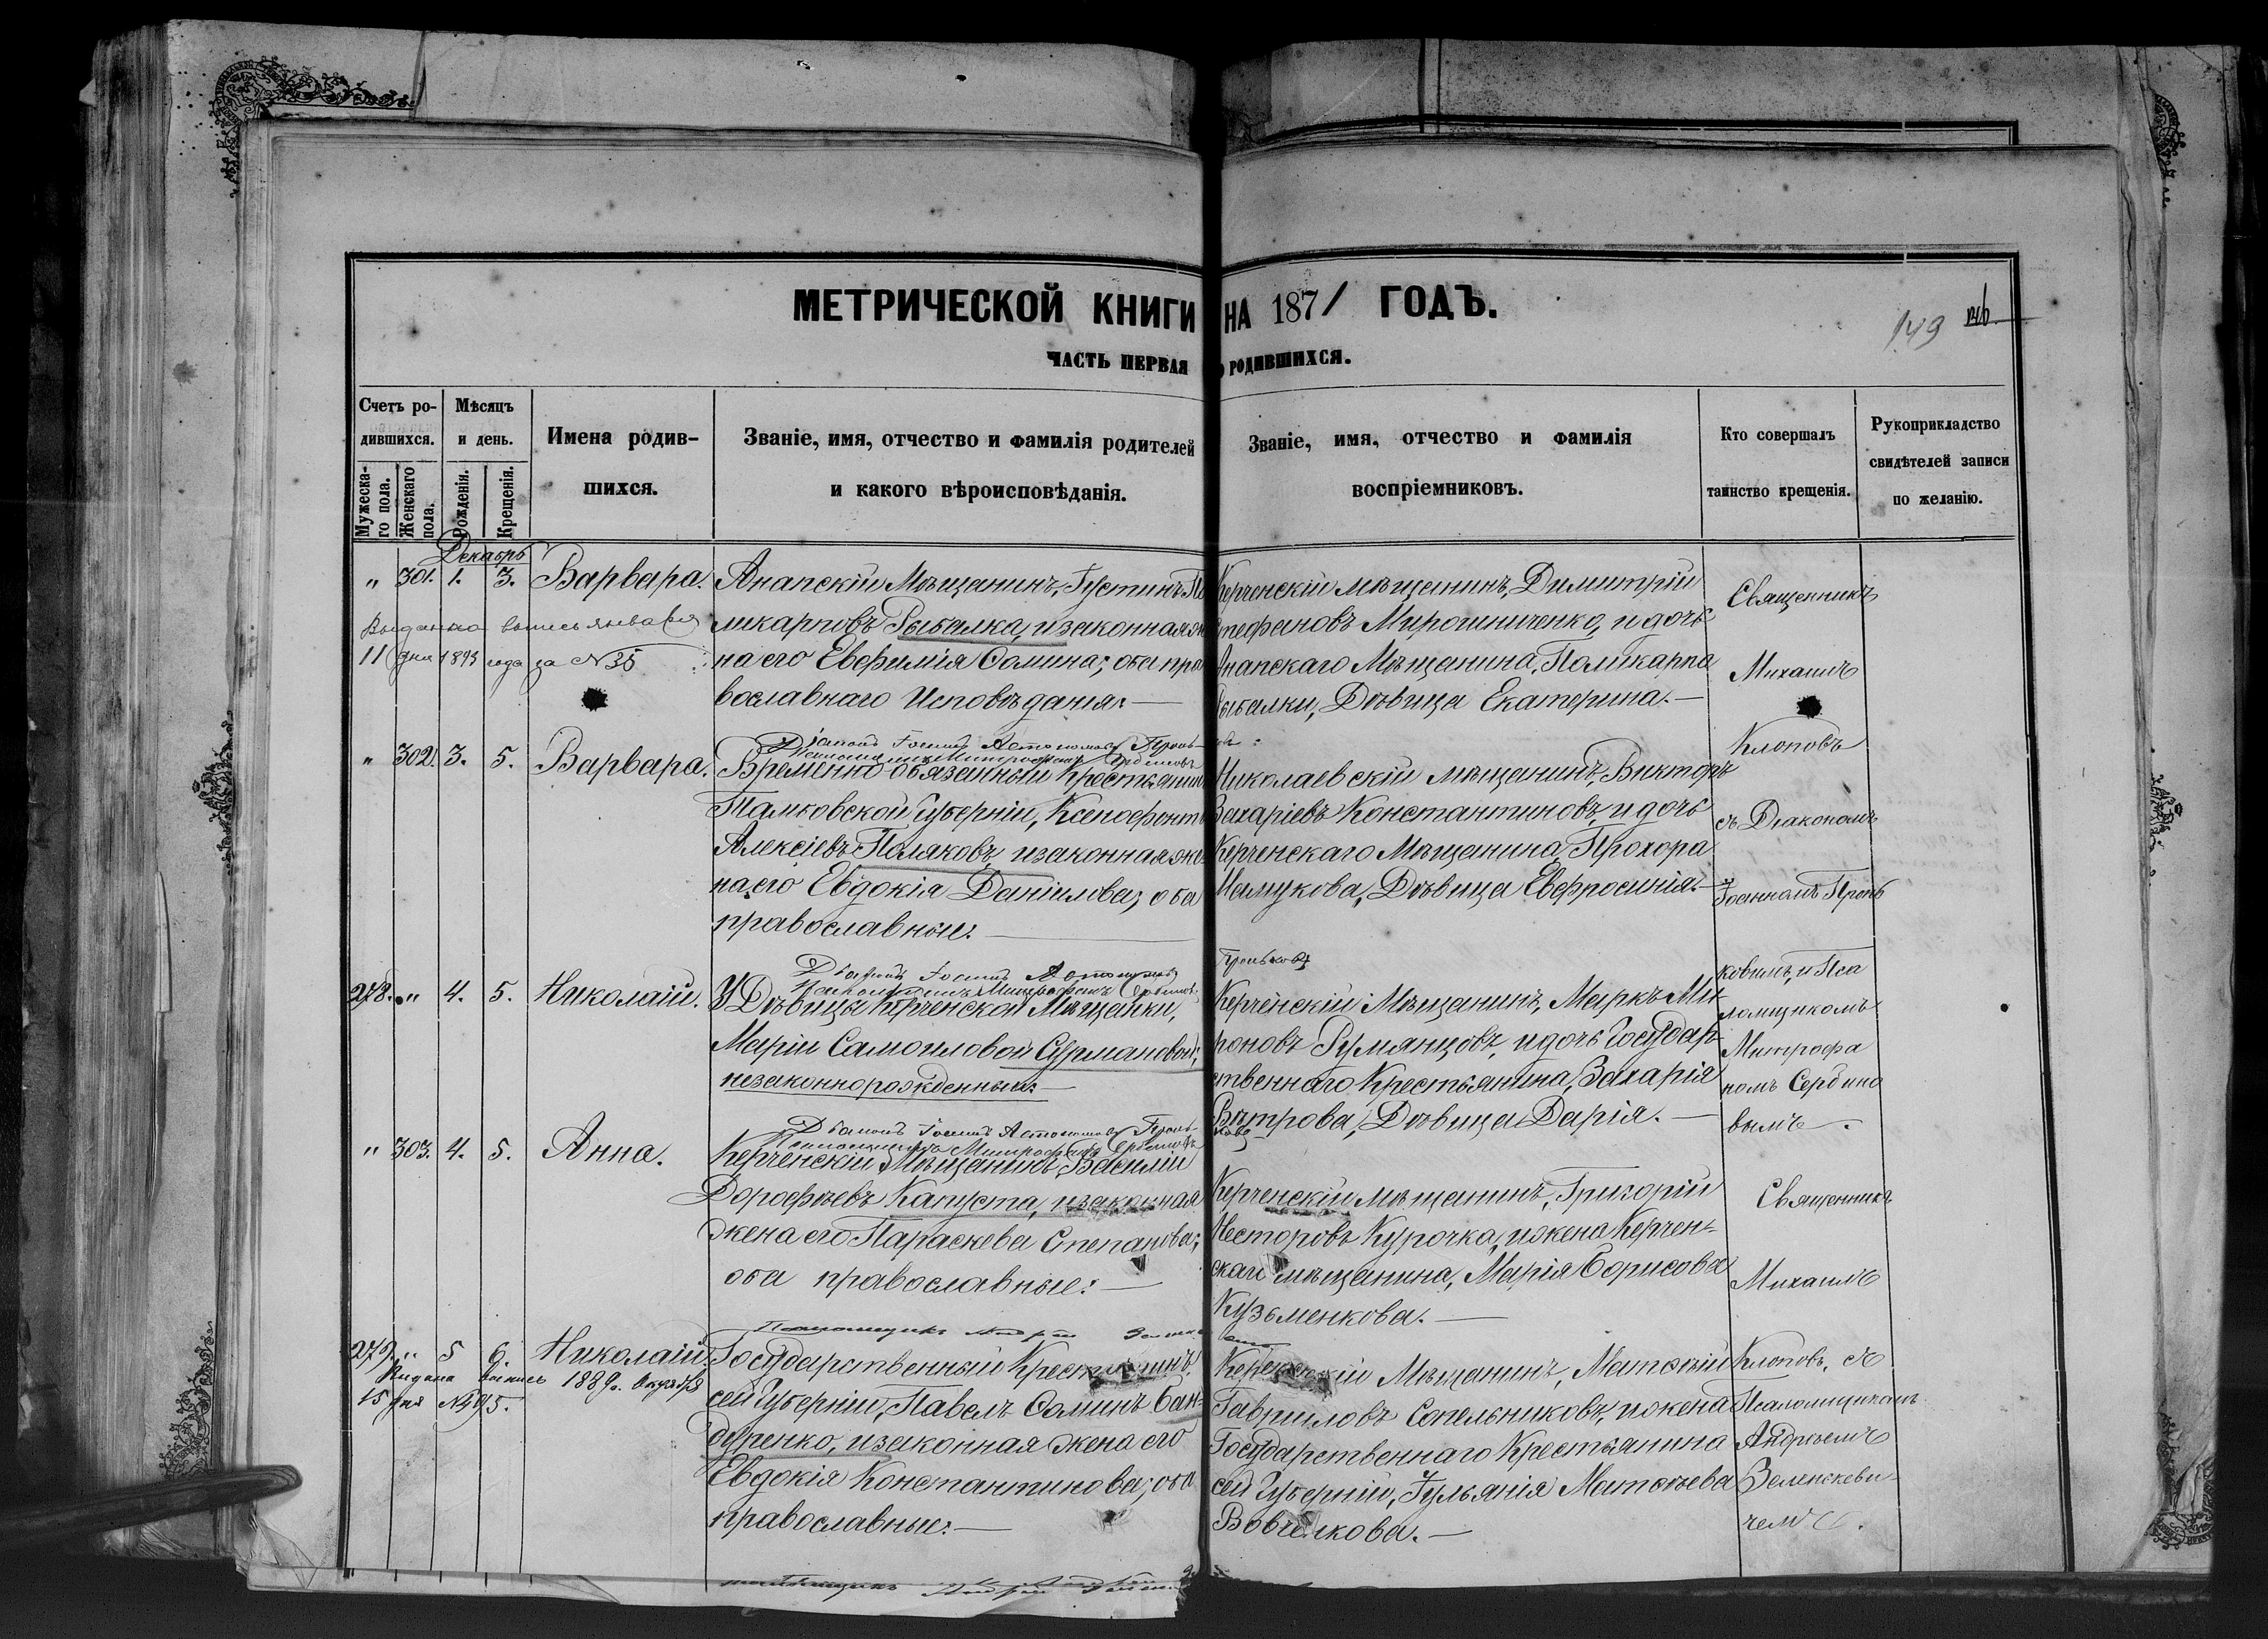 МЕТРИЧЕСКОЙ КНИГИ НА 1871 ГОДЪ.
149
ЧАСТЬ ПЕРВАЯ О РОДИВШИХСЯ.
Счетъ родившихся.
Мужескаго пола.
Женскаго пола.
Мѣсяцъ и день.
Рожденія.
Крещенія.
Имена родившихся.
Званіе, имя, отчество и фамилія родителей
и какого вѣроисповѣданія.
Званіе, имя, отчество и фамилія
воспріемниковъ.
Кто совершалъ
таинство крещенія.
Рукоприкладство
свидѣтелей записи
по желанію.
Декабрь
" 301. 1. 3. Варвара.
Выдана выпись января
11 дня 1893 года за №35
Анапскій Мѣщанинъ, Іустинъ По
ликарповъ Рыбалка, и законная же
на его Евфимія Сомина; оба пра
вославнаго Исповѣданія:
Керченскій мѣщанинъ, Димитрій
Стефановъ Мирошниченко, и дочь
Анапскаго Мѣщанина, Поликарпа
Рыбалки, Дѣвица Екатерина.
Священникъ
Михаилъ
Клоповъ
съ Діакономъ
Іоанномъ Пронь
ковымъ, и Пса
ломщикомъ
Митрофа
номъ Сербино
вымъ.
" 302. 3. 5. Варвара.
Временно-обязанный Крестьянинъ
Тамбовской Губерніи, Ксенофонтъ
Алексіевъ Поляковъ, и законная же
на его Евдокія Даніилова; оба
православные:
Николаевскій мѣщанинъ, Викторъ
Захаріевъ Константиновъ, и дочь
Керченскаго Мѣщанина, Прохора
Мамукова, Дѣвица Евфросинія.
278. " 4. 5. Николай.
У Дѣвицы Керченской Мѣщанки,
Маріи Самоиловой Сурмановой;
незаконнорожденный:
Керченскій Мѣщанинъ, Маркъ Ми
роновъ Румянцовъ, и дочь Государ
ственнаго Крестьянина, Захарія
Вѣтрова, Дѣвица Дарія.
" 303. 4. 5. Анна.
Керченскій Мѣщанинъ, Василій
Дорофѣевъ Капуста, и законная
жена его Параскева Степанова;
оба православные:
Керченскій мѣщанинъ, Григорій
Несторовъ Курочка, и жена Керчен
скаго мѣщанина, Марія Борисова
Кузьменкова.
Священникъ
Михаилъ
Клоповъ, съ
Псаломщикомъ
Андреемъ
Зеленскеви
чемъ.
279. " 5 6. Николай.
Выдана выпись 1889 г. Октября
15 дня №495.
Государственный Крестьянинъ
сей Губерніи, Павелъ Соминъ Бан
дуренко, и законная жена его
Евдокія Константинова; оба
православные:
Керченскій Мѣщанинъ, Матѳѣй
Гавриловъ Сопельниковъ, и жена
Государственнаго Крестьянина
сей Губерніи, Іульянія Матѳѣева
Вовченкова.